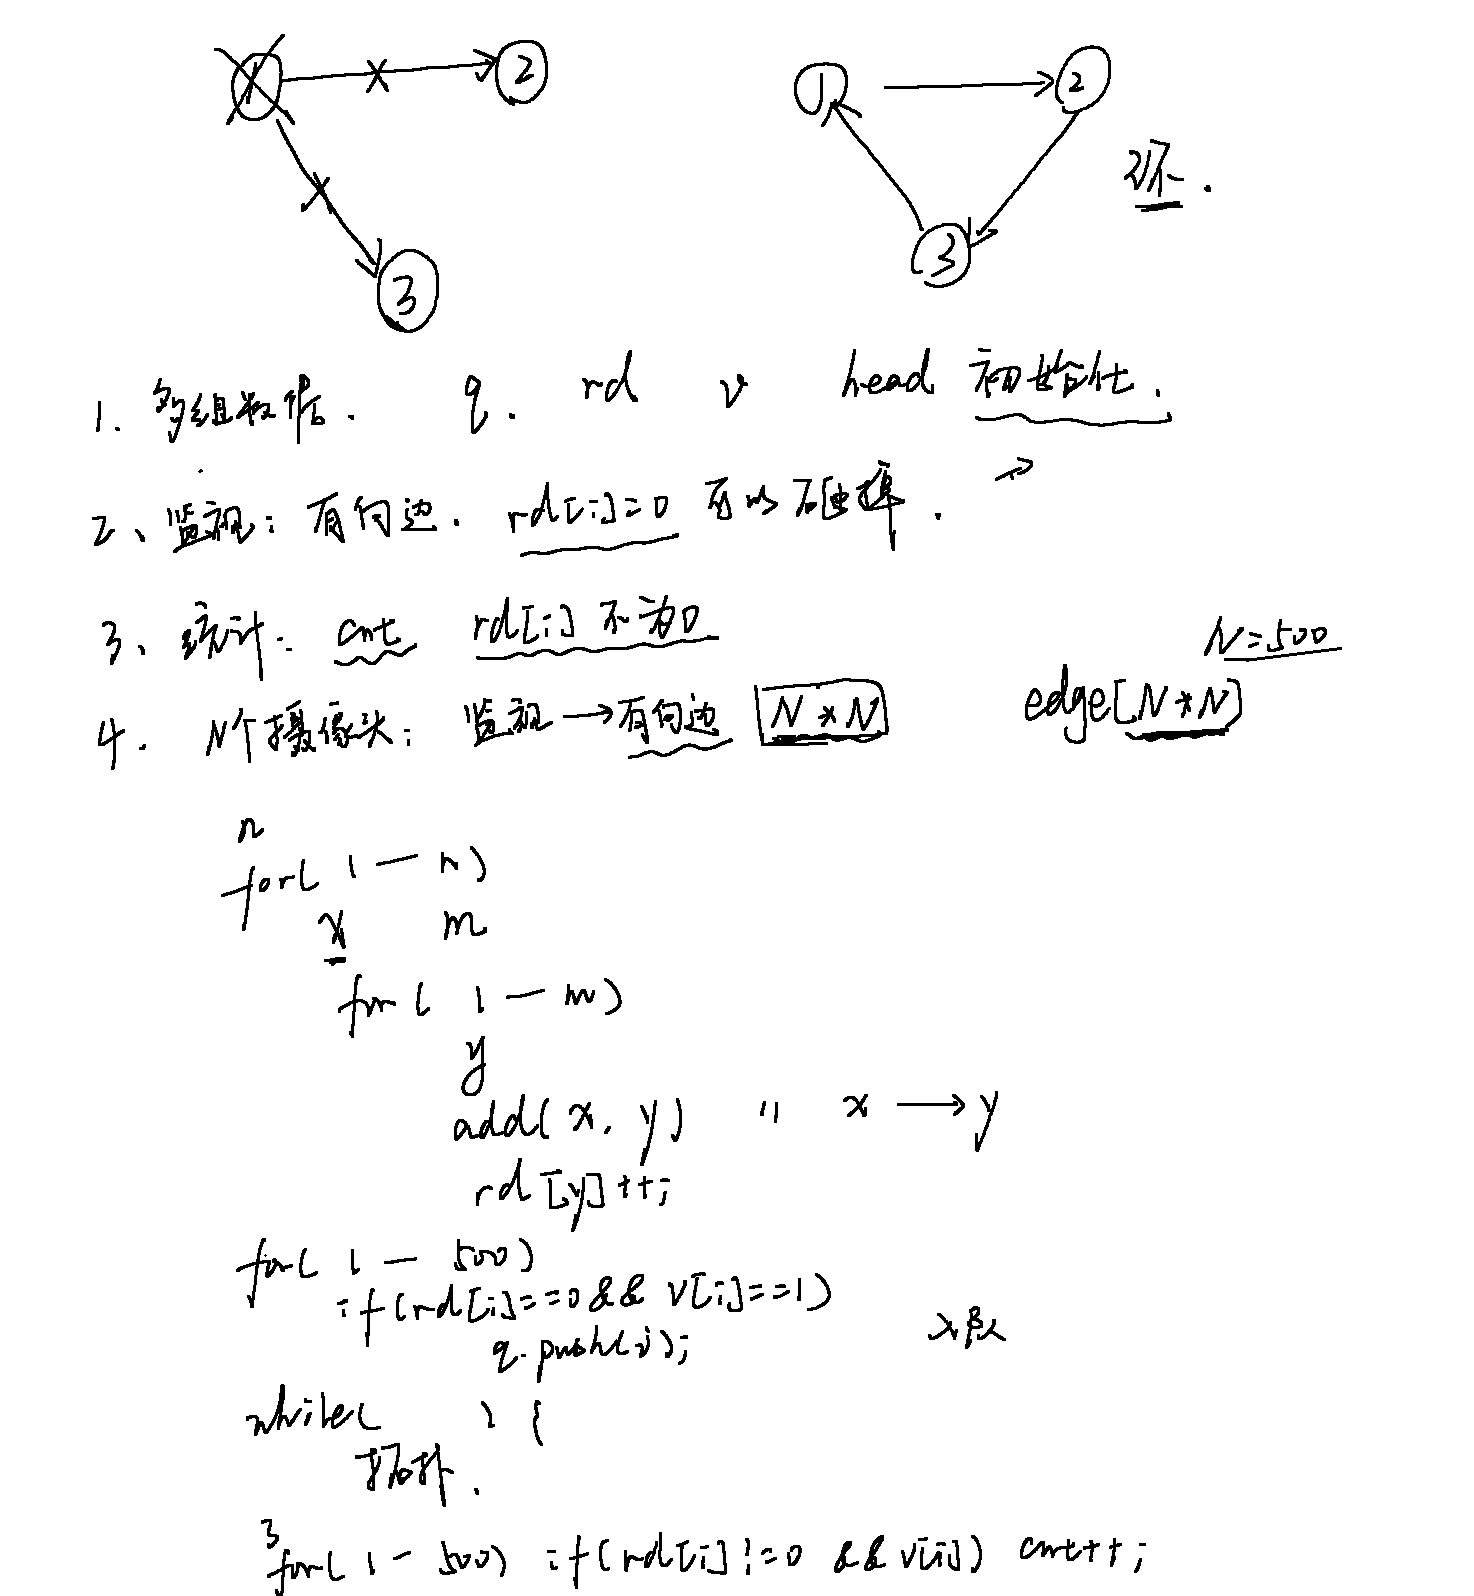 1 2
3
1 2
3
环.
1. 多组数据. q. rd v head 初始化.
2、监视: 有向边. rd[i]=0 可以砸掉.
3、统计: cnt rd[i] 不为0
N=500
4. N个摄像头: 监视→有向边 N*N edge[N*N]
n
for( 1 — n)
x m
for( 1 — m)
y
add(x, y) " x → y
rd[y]++;
for( 1 — 500)
if(rd[i]==0 && v[i]==1)
q.push(i); 入队
while( ) {
拓扑.
}
for(1 - 500) if(rd[i]!=0 && v[i]) cnt++;